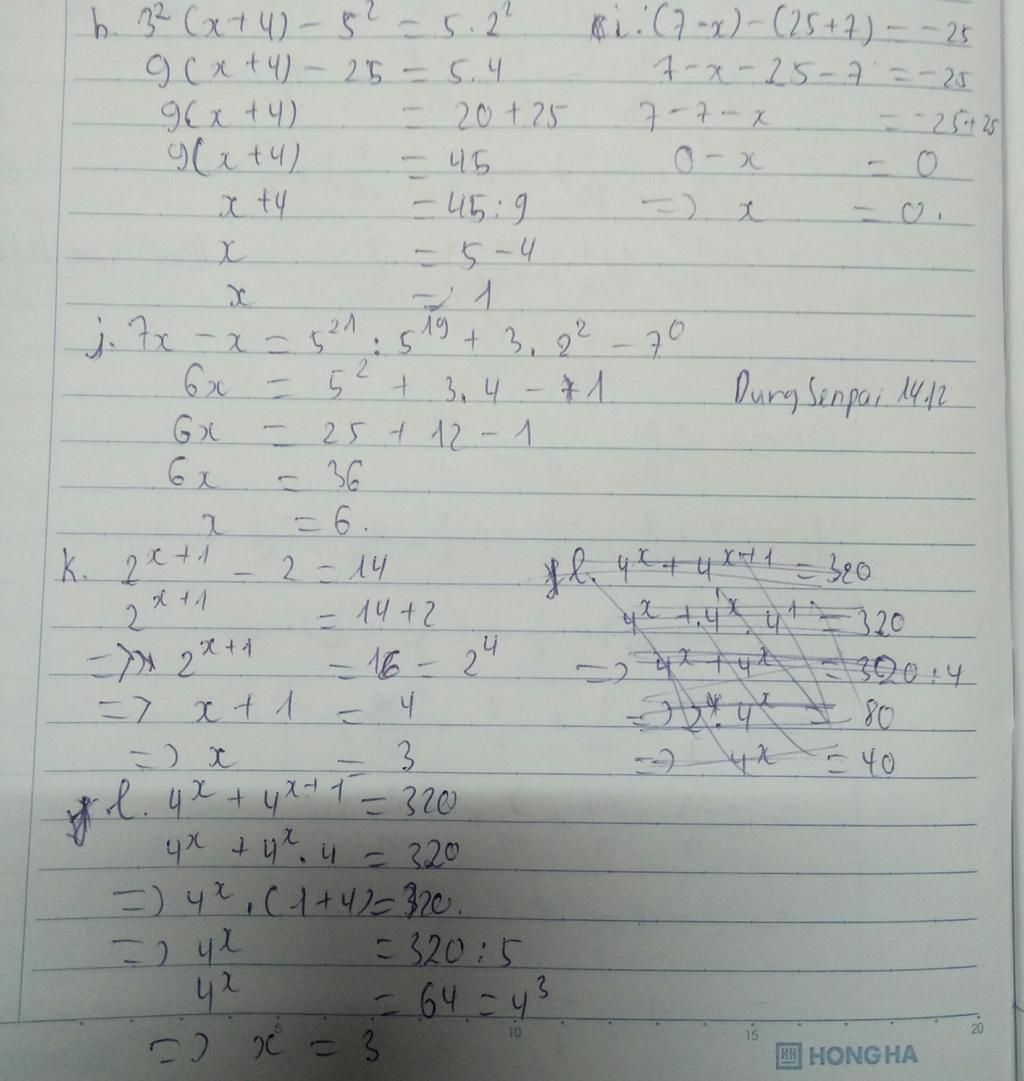 h. 3² (x+4) - 5² = 5.2²
9(x+4) - 25 = 5.4
9(x+4) = 20+25
9(x+4) = 45
x+4 = 45:9
x = 5-4
x = 1
i. (7-x)-(25+7) = -25
7-x-25-7 = -25
7-7-x = -25+25
0-x = 0
=> x = 0.
j. 7x - x = 5²¹ : 5¹⁹ + 3. 2² - 7⁰
6x = 5² + 3.4 - 1
6x = 25 + 12 - 1
6x = 36
x = 6.
Dung Senpai 14.12
k. 2ˣ⁺¹ - 2 = 14
2ˣ⁺¹ = 14+2
=> 2ˣ⁺¹ = 16 = 2⁴
=> x+1 = 4
=> x = 3
l. 4ˣ + 4ˣ⁺¹ = 320
4ˣ + 4ˣ. 4¹ = 320
=> 4ˣ + 4ˣ = 320:4
=> 2. 4ˣ = 80
=> 4ˣ = 40
l. 4ˣ + 4ˣ⁺¹ = 320
4ˣ + 4ˣ. 4 = 320
=> 4ˣ . (1+4) = 320.
=> 4ˣ = 320:5
4ˣ = 64 = 4³
=> x = 3
5 10 15 20
HH HONG HA